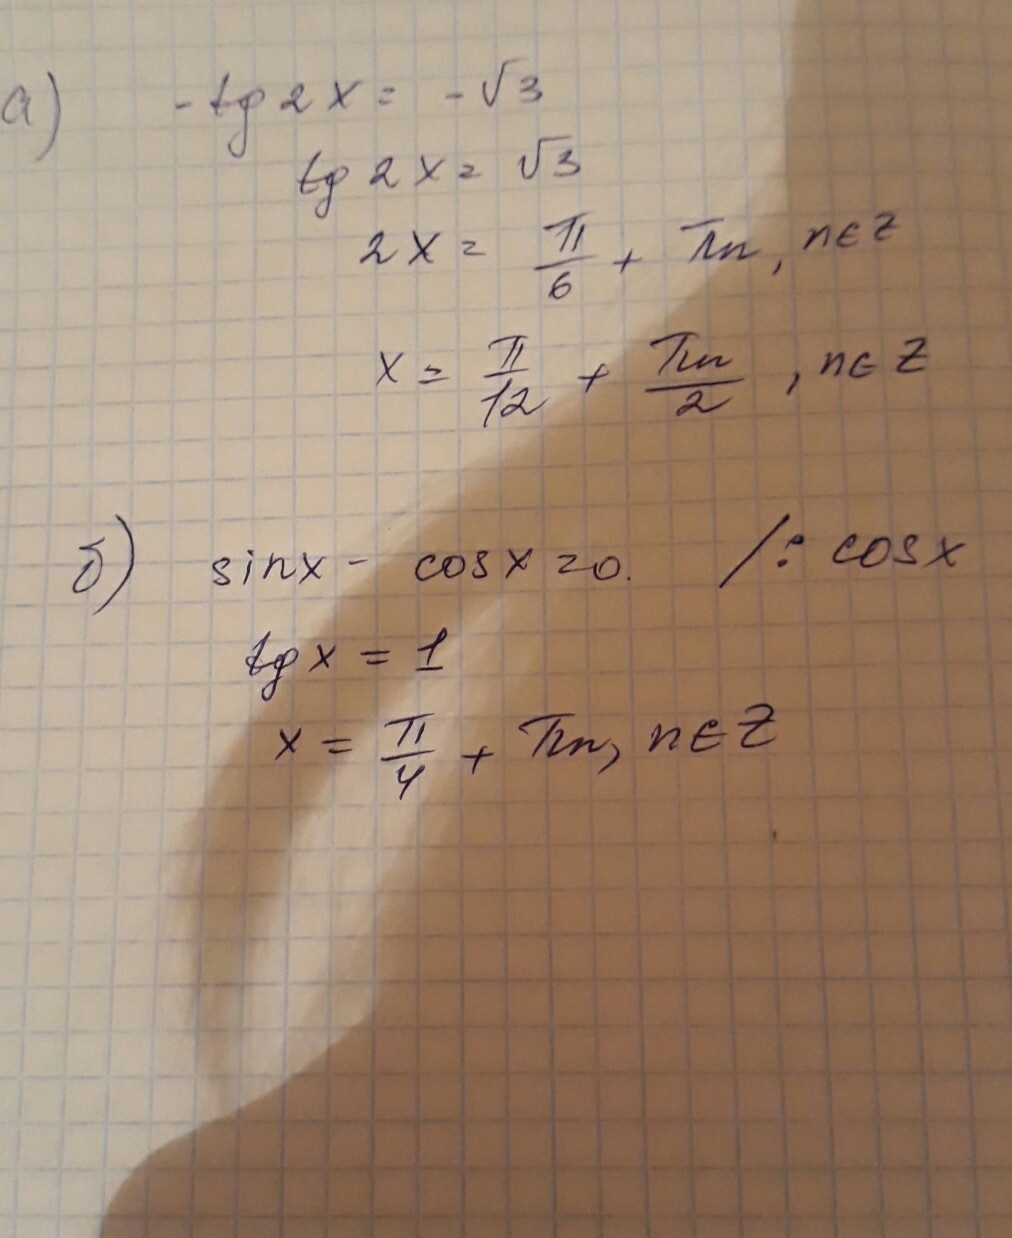 а) -tg 2x = -√3
tg 2x = √3
2x = π/6 + πn, n∈Z
x = π/12 + πn/2, n∈Z
б) sinx - cosx = 0. /: cosx
tgx = 1
x = π/4 + πn, n∈Z